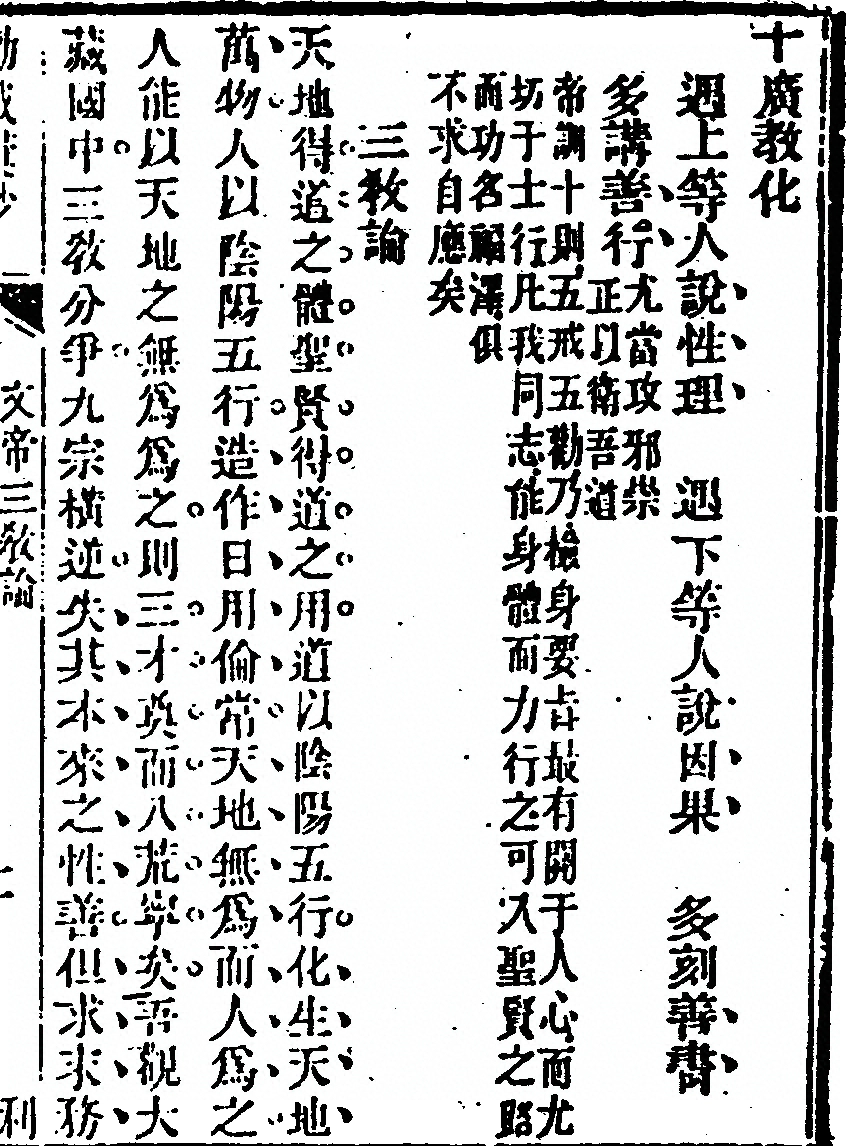 十廣教化
遇上等人說性理　遇下等人說因果　多刻善書
多講善行尤當攻邪崇
正以衛吾道
帝訓十則五戒五勸乃檢身要旨最有關于人心而尤
切于士行凡我同志能身體而力行之可入聖賢之路
而功名福澤俱
不求自應矣
三敎論
天地得道之體聖賢得道之用道以陰陽五行化生天地
萬物人以陰陽五行造作日用倫常天地無為而人為之
人能以天地之無為為之則三才奠而八荒寧矣吾觀大
藏國中三敎分爭九宗橫逆失其本來之性善但求末務
文帝三敎論